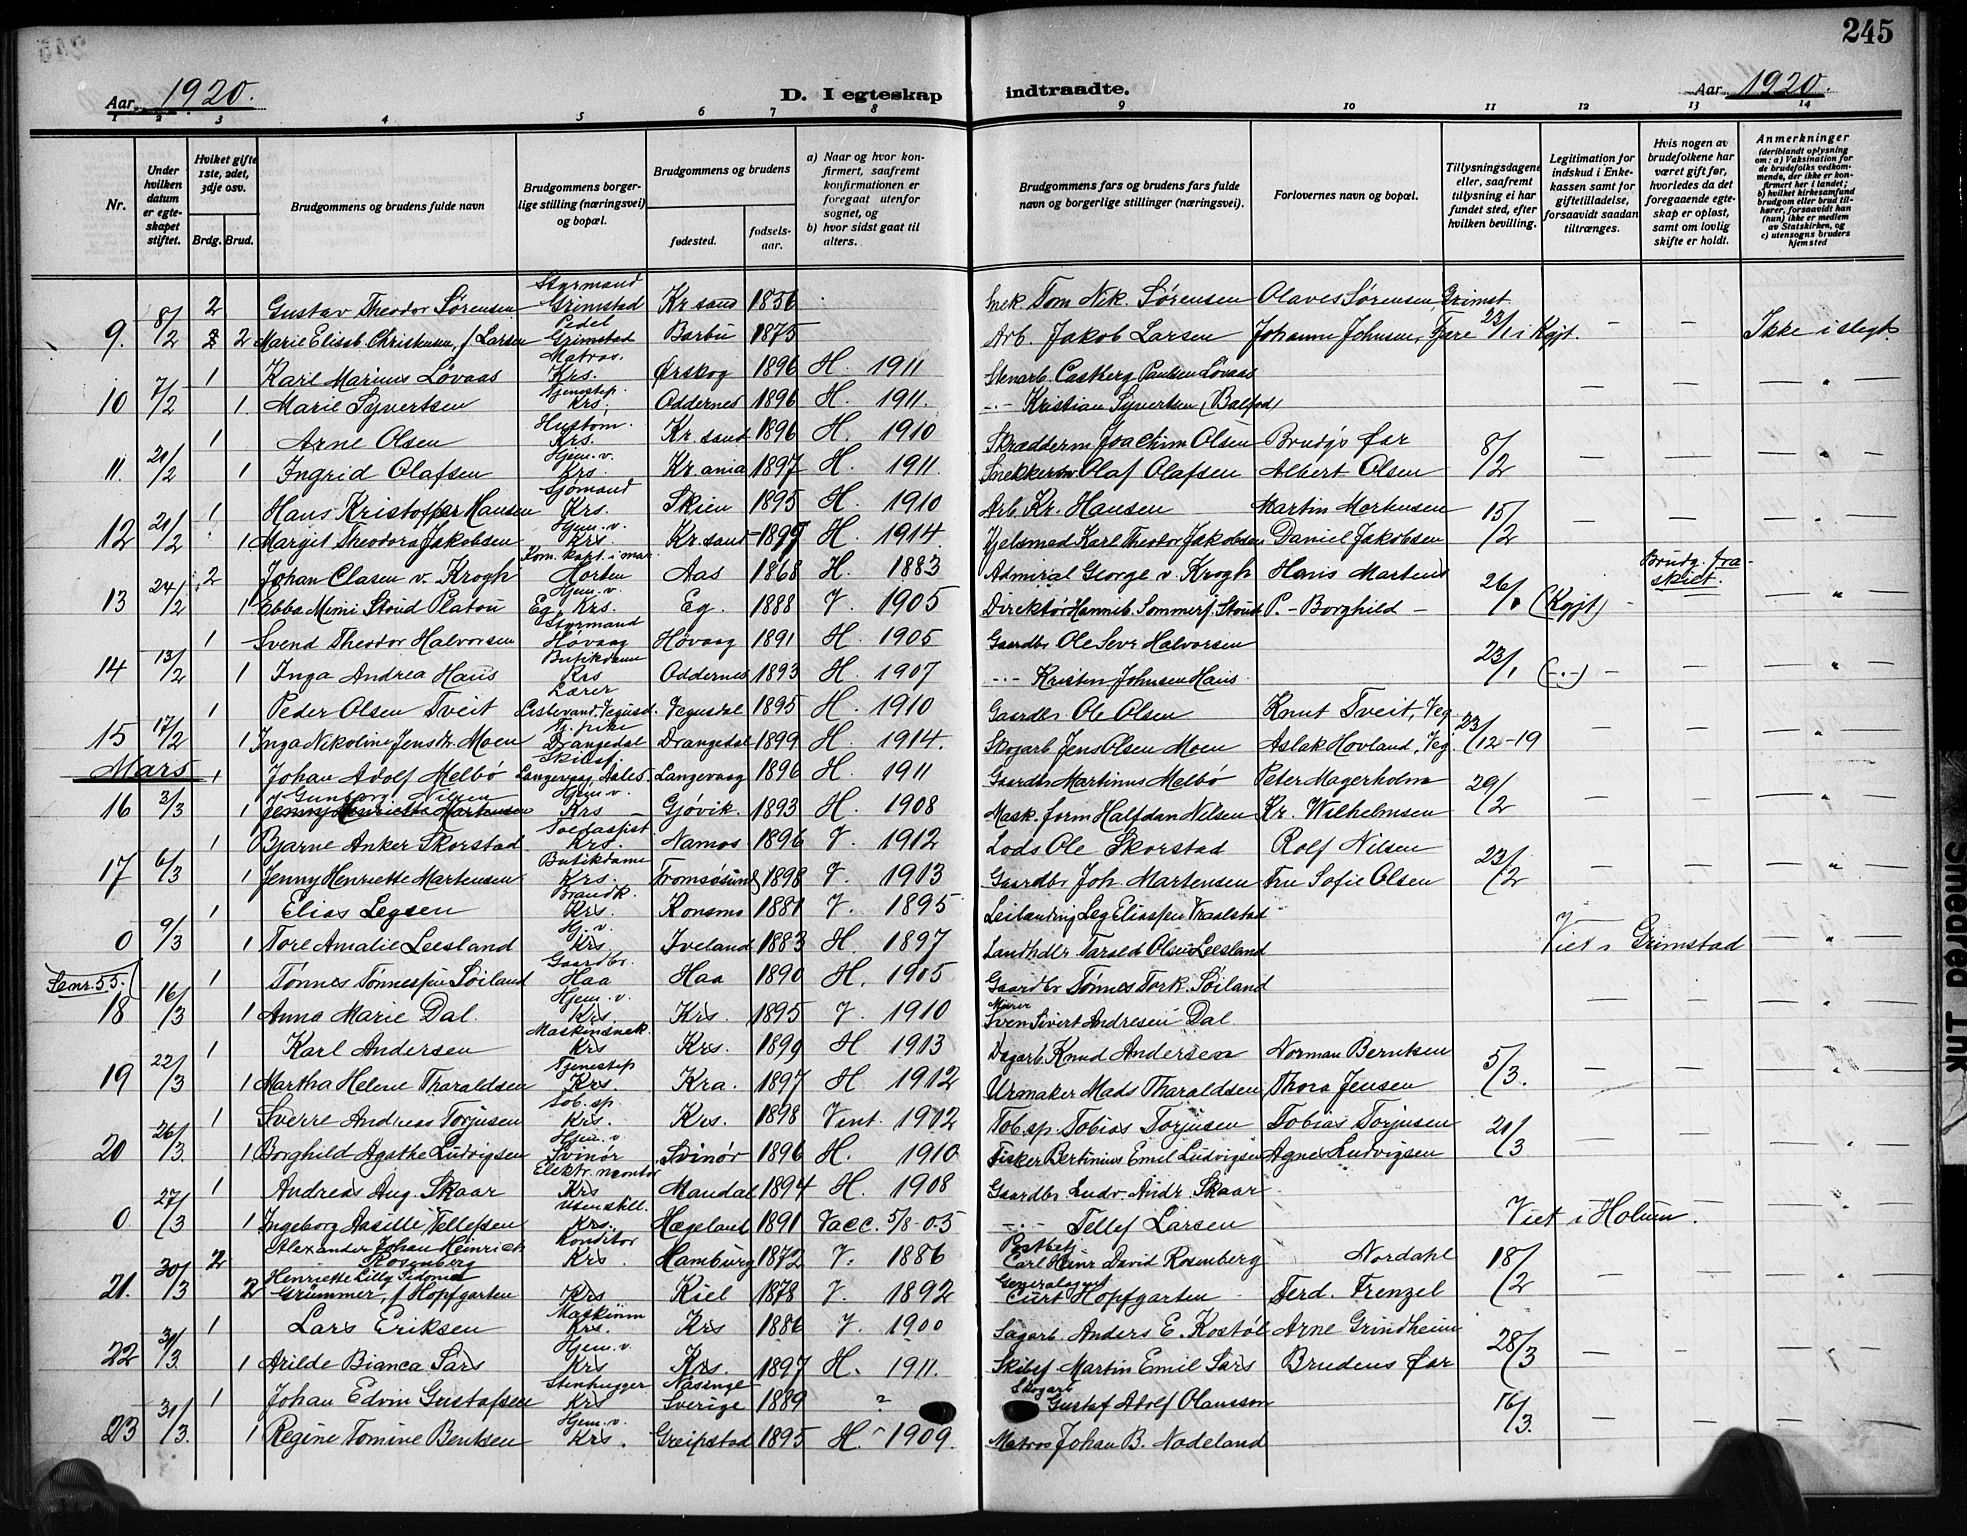 245
Aar 1920. D. I egteskap indtraadte. Aar 1920.
1 2 3 4 5 6 7 8 9 10 11 12 13 14
Nr.
Under hvilken datum er egteskapet stiftet.
Hviket gifte 1ste, 2det, 3dje osv.
Brdg. Brud.
Brudgommens og brudens fulde navn
Brudgommens borgerlige stilling (næringsvei) og bopæl.
Brudgommens og brudens
fødested. fødselsaar.
a) Naar og hvor konfirmert, saafremt konfirmationen er foregaat utenfor sognet, og
b) hvor sidst gaat til alters.
Brudgommens fars og brudens fars fulde navn og borgerlige stillinger (næringsvei).
Forlovernes navn og bopæl.
Tillysningsdagene eller, saafremt tillysning ei har fundet sted, efter hvilken bevilling.
Legitimation for indskud i Enkekassen samt for giftetilladelse, forsaavidt saadan tiltrænges.
Hvis nogen av brudefolkene har været gift før, hvorledes da det foregaaende egteskap er opløst, samt om lovlig skifte er holdt.
Anmerkninger
(deriblandt oplysning om: a) Vaksination for de brudefolks vedkommende, der ikke er konfirmert her i landet; b) hvilket kirkesamfund brudgom eller brud tilhører, forsaavidt han (hun) ikke er medlem av Statskirken, og c) utensogns bruders hjemsted
Styrmand
2 Gustav Theodor Sørensen Grimstad Kr sand 1856 Snek. Tom Nik. Sørensen Olaves Sørensen, Grimst.
9. 8/2 2 Marie Elisab. Christensen, f Larsen Pedel Grimstad Barbu 1875 Arb. Jakob Larsen Johanne Johnsen, Fjære 23/1 i Kgjt. — — Ikke i slegt.
1 Karl Marius Løvaas Matros. Krs. Ørskog 1896 H. 1911 Stenarb. Castberg Paulsen Løvaas
10 7/2 1 Marie Syvertsen Tjenestep. Krs. Oddernes 1896 H. 1911. -·- Kristian Syvertsen (Balfod) — — " —
1 Arne Olsen Krs. Kr sand 1896 H. 1910 Skrædderm. Joachim Olsen Brudg's far
11. 21/2 1 Ingrid Olafsen Hjem. v. Krs. Kr ania 1897 H. 1911. Snekkersv. Olaf Olafsen Albert Olsen 8/2 — — " —
1 Hans Kristoffer Hansen Sjømand Krs. Skien 1895 H. 1910 Arb. Kr. Hansen Martin Mortensen
12 21/2 1 Margit Theodora Jakobsen Hjem. v. Krs. Kr. sand 1897 H. 1914. Hjelsmed Karl Theodor Jakobsen Daniel Jakobsen 15/2 — — " —
2 Johan Clasen v. Krogh Kom. kapt. i mar. Horten Aas 1868 H. 1883 Admiral George v. Krogh Hans Martens Brudg. fraskilt.
13 24/2 1 Ebba Mimi Stoud Platou Hjem. v. Eg, Krs. Eg. 1888 V. 1905 Direktør Hannib. Sommerf. Stoud P. - Borghild - 26/1 (Kgjt) - "
1 Svend Theodor Halvorsen Styrmand Høvaag Høvaag 1891 H. 1905 Gaardbr. Ole Sevr. Halvorsen
14 13/2 1 Inga Andrea Haus Butikdame Krs Oddernes 1893 H. 1907 -·- Kristen Johnsen Haus 23/1 (-·-) — — " —
1 Peder Olsen Tveit Lærer Vegusd. Vegusdal 1895 H. 1910 Gaardbr. Ole Olsen Knut Tveit, Veg.
15 17/2 1 Inga Nikoline Jensdr. Moen Drangedal Drangedal 1899 H. 1914. Skogarb. Jens Olsen Moen Aslak Hovland, Veg. 23/12-19 — — " —
Mars
1 Johan Adolf Melbø Langevaag, Aales. Langevaag 1896 H. 1911 Gaardbr. Martinus Melbø Peter Magerholm
16 3/3 1 Gunborg Nilsen Hjem. v. Krs Gjøvik. 1893 H. 1908 Mask. form. Halfdan Nilsen Kr. Wilhelmsen 29/2 — — " —
1 Bjarne Anker Skorstad Toldassist. Krs. Namos 1896 V. 1912 Lods Ole Skorstad Rolf Nilsen
17 6/3 1 Jenny Henriette Martensen Butikdame Krs. Tromsøsund 1898 V. 1913 Gaardbr. Joh. Martensen Fru Sofie Olsen 23/2 — — " —
1 Elias Legsen Brandk. Krs. Konsmo 1881 V. 1895 Leilænding Leg Eliassen Vraalstad
0 9/3 1 Tore Amalie Leesland Hj. v. Krs. Iveland 1883 H. 1897 Landhdlr. Tarald Olsen Leesland Viet i Grimstad "
Se nr. 55.
1 Tønnes Tønnessen Søiland Gaardbr. Haa Haa 1890 H. 1905 Gaardbr Tønnes Tork. Søiland
18 16/3 1 Anna Marie Dal. Hjem. v. Krs Krs. 1895 V. 1910 Murer Sven Sivert Andresen Dal. — — " —
1 Karl Andersen Maskinsnek. Krs Krs. 1899 H 1913 Dagarb. Knud Andersen Norman Berntsen
19 22/3 1 Martha Helene Tharaldsen Tjenestep Krs. Kra. 1897 H. 1912 Urmaker Mads Tharaldsen Thora Jensen 5/3. — — " —
1 Sverre Andreas Torjusen Tob. sp. Krs. Krs. 1898 Vent. 1912 Tob. sp. Tobias Torjusen Tobias Torjusen
20 26/3. 1 Borghild Agathe Ludvigsen Hjem. v Svinør Svinør 1896 H. 1910 Fisker Bertinius Emil Ludvigsen Agnes Ludvigsen 21/3 — — " —
1 Andreas Aug. Skaar Elektr. montør Krs Mandal 1894 H. 1908 Gaardbr. Ludv. Andr. Skaar
0 27/3 1 Ingeborg Aasille Tellefsen Uten still. Krs. Hægeland 1891 Vacc. 5/8-05 -·- Tellef Larsen Viet i Holum. "
2 Alexander Johan Heinrich Rosenberg Konditor Krs. Hamburg 1872 V. 1886 Postbetj Carl Heinr David Rosenberg Nordahl
21. 30/3 2 Henriette Lilly Sidonie Grümmer, f Hopfgarten Krs Kiel 1878 V. 1892 Generalagent Curt Hopfgarten Ferd. Frenzel 18/2 — — " —
1 Lars Eriksen Krs. Krs 1886 V. 1900 Sagarb. Anders E. Kostøl Arne Grindheim
22 31/3 1 Arilde Bianca Sars Hjem. v. Krs Krs. 1897 H. 1911. Skibsf Martin Emil Sars Brudens far 28/3 — — " —
1 Johan Edvin Gustafsen Stenhugger Krs Nasinge Sverige 1889 ? Skogarb Gustaf Adolf Olausson
23 31/3. 1 Regine Tomine Bentsen Hjem. v. Krs. Greipstad 1895 H. 1909. Matros Johan B. Nodeland 16/3. — — " —
Smeared Ink